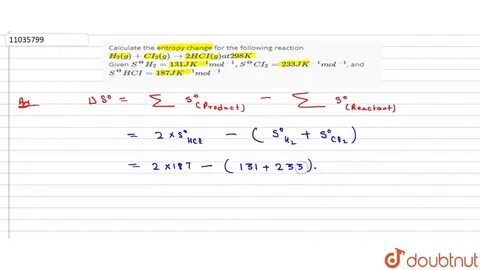 11035799
Calculate the entropy change for the following reaction
H₂(g) + CI₂(g) → 2HCI(g)at298K
Given S^⊖H₂ = 131JK⁻¹mol⁻¹, S^⊖CI₂ = 233JK⁻¹mol⁻¹, and
S^⊖HCI = 187JK⁻¹mol⁻¹
Ans ΔS° = Σ S°(Product) - Σ S°(Reactant)
= 2 × S°HCl - (S°H₂ + S°Cl₂)
= 2 × 187 - (131 + 233).
doubtnut